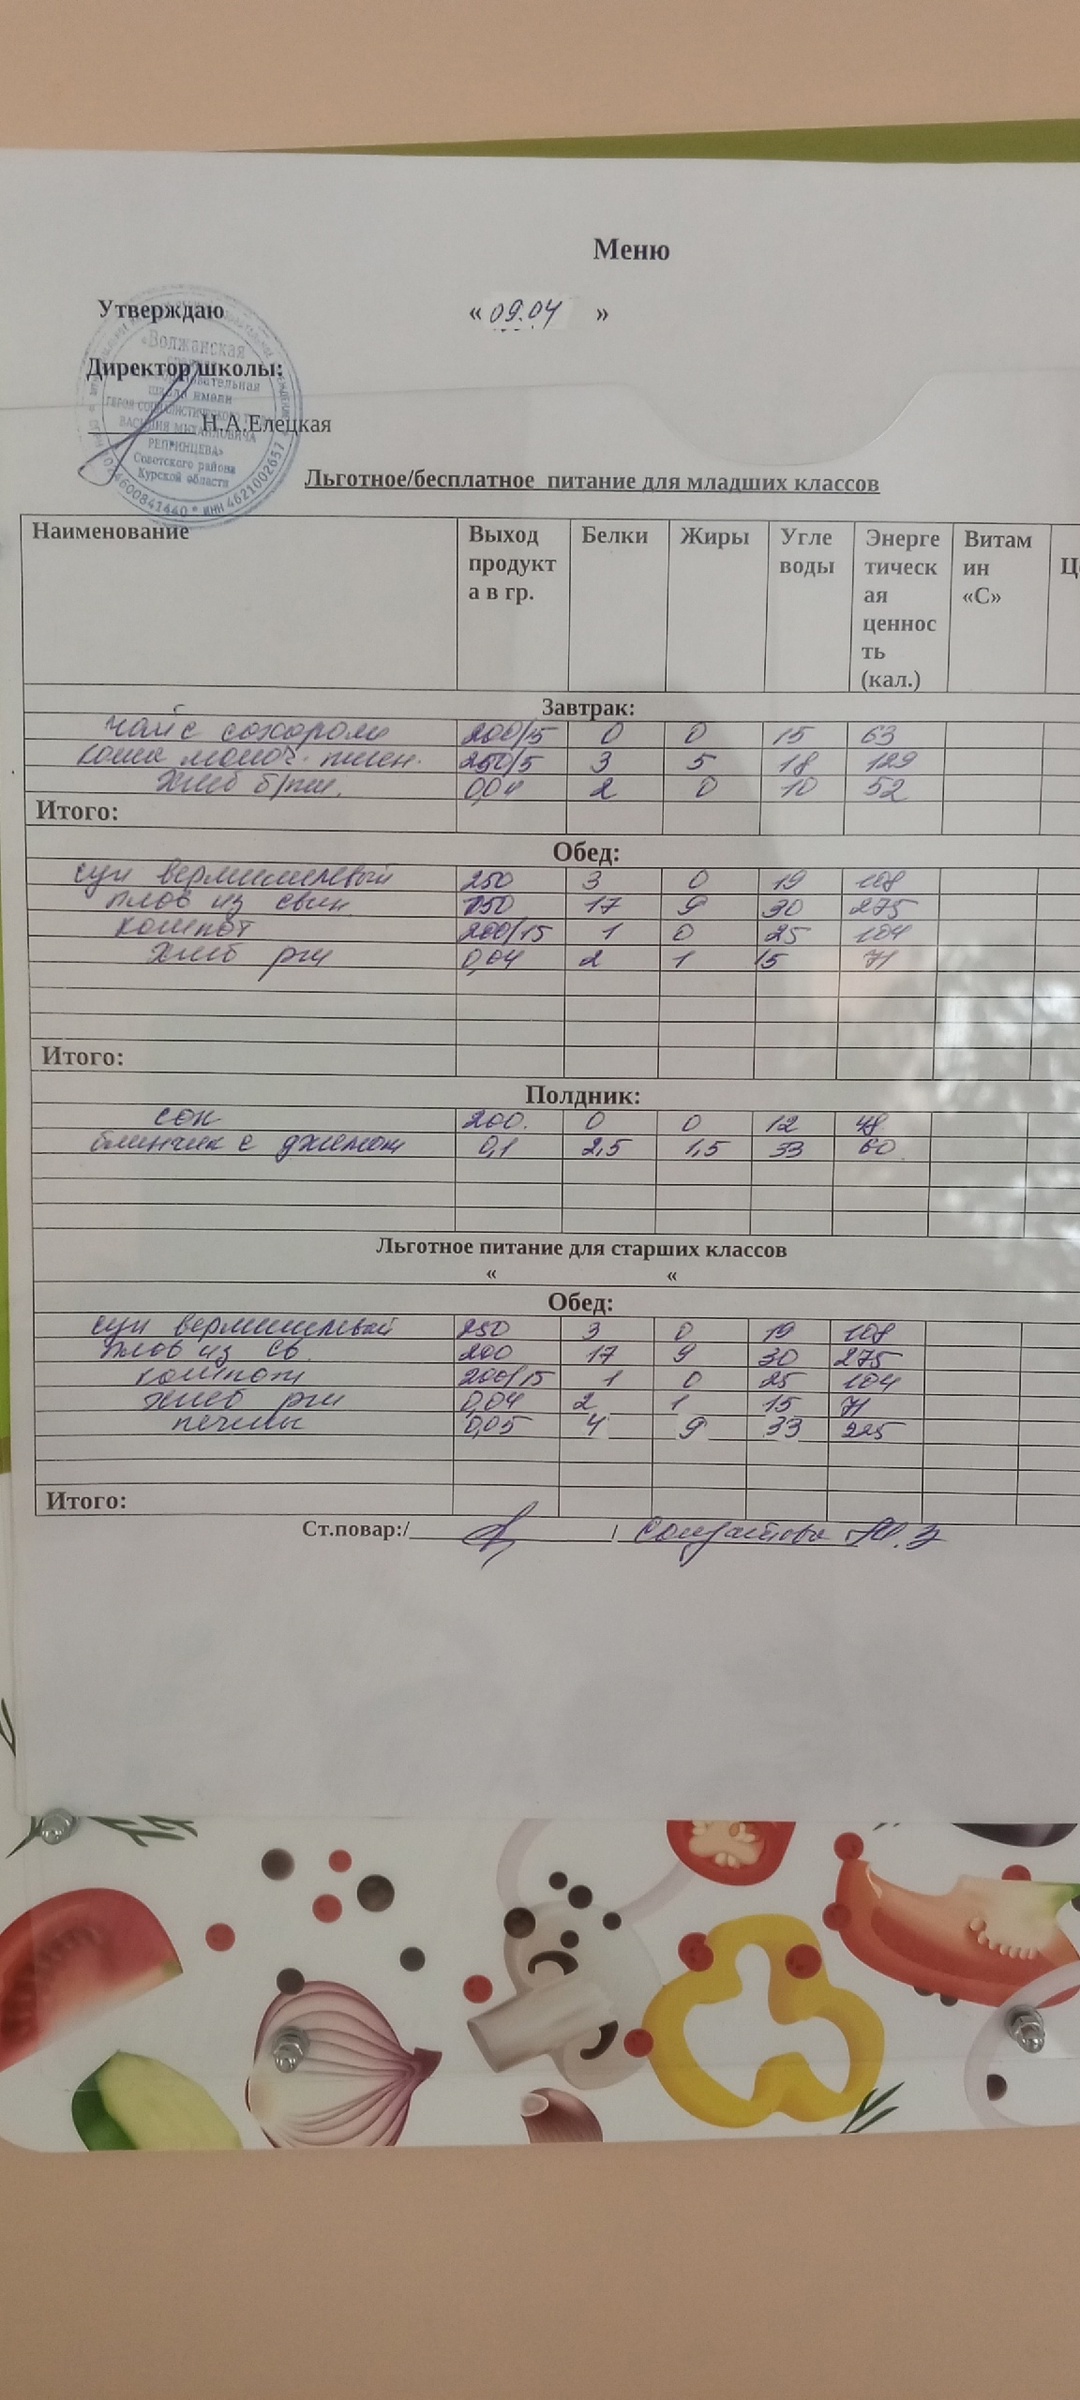 Меню
Утверждаю « 09.04 »
«Волжанская
Директор школы:
школа имени
ВАСИЛИЯ МИХАЙЛОВИЧА
Н.А.Елецкая
РЕПРИНЦЕВА»
Советского района
Курской области
ИНН 4621002657
Льготное/бесплатное питание для младших классов
Наименование Выход продукта в гр. Белки Жиры Углеводы Энергетическая ценность (кал.) Витамин «С»
Завтрак:
чай с сахаром 200/5 0 0 15 63
каша молоч. пшен. 250/5 3 5 18 129
хлеб б/пш. 0,04 2 0 10 52
Итого:
Обед:
суп вермишелевый 250 3 0 19 108
плов из свин 150 17 9 30 275
компот 200/15 1 0 25 104
хлеб рж 0,04 2 1 15 71
Итого:
Полдник:
сок 200. 0 0 12 48
блинчик с джемом 0,1 2,5 1,5 33 60
Льготное питание для старших классов
« «
Обед:
суп вермишелевый 250 3 0 19 108
плов из св. 200 17 9 30 275
компот 200/15 1 0 25 104
хлеб рж 0,04 2 1 15 71
0,05 4 9 33 225
Итого:
Ст.повар:/ /